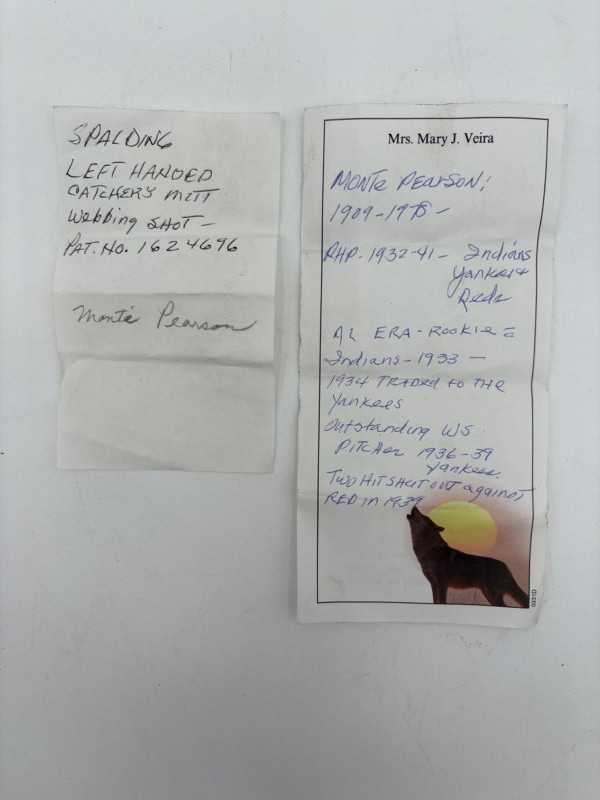 SPALDING
LEFT HANDED
CATCHERS MITT
Webbing SHOT -
PAT. NO. 1624696
Monte Pearson
Mrs. Mary J. Veira
MONTE PEARSON;
1909-1978 -
RHP. 1932-41 - Indians
Yankees
Reds
AL ERA - ROOKIE =
Indians - 1933 -
1934 TRADED to THE
Yankees
Outstanding WS
PITCHER 1936-39
Yankees.
TWO HIT SHUT OUT against
RED in 1939
0331D